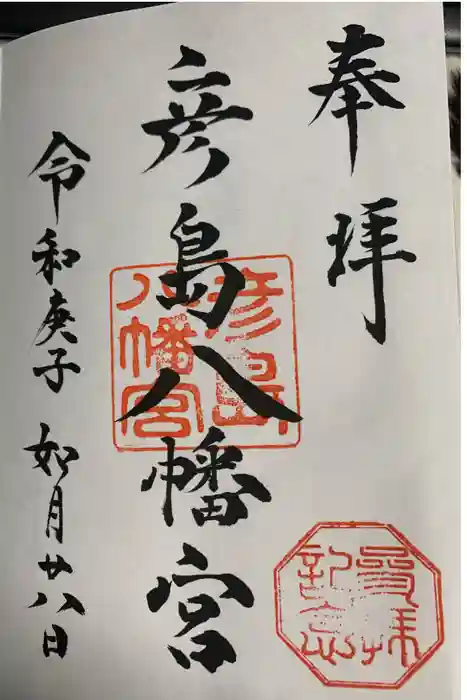 奉拝
彦島八幡宮
令和庚子 如月廿八日
彦島
八幡宮
参拝
記念